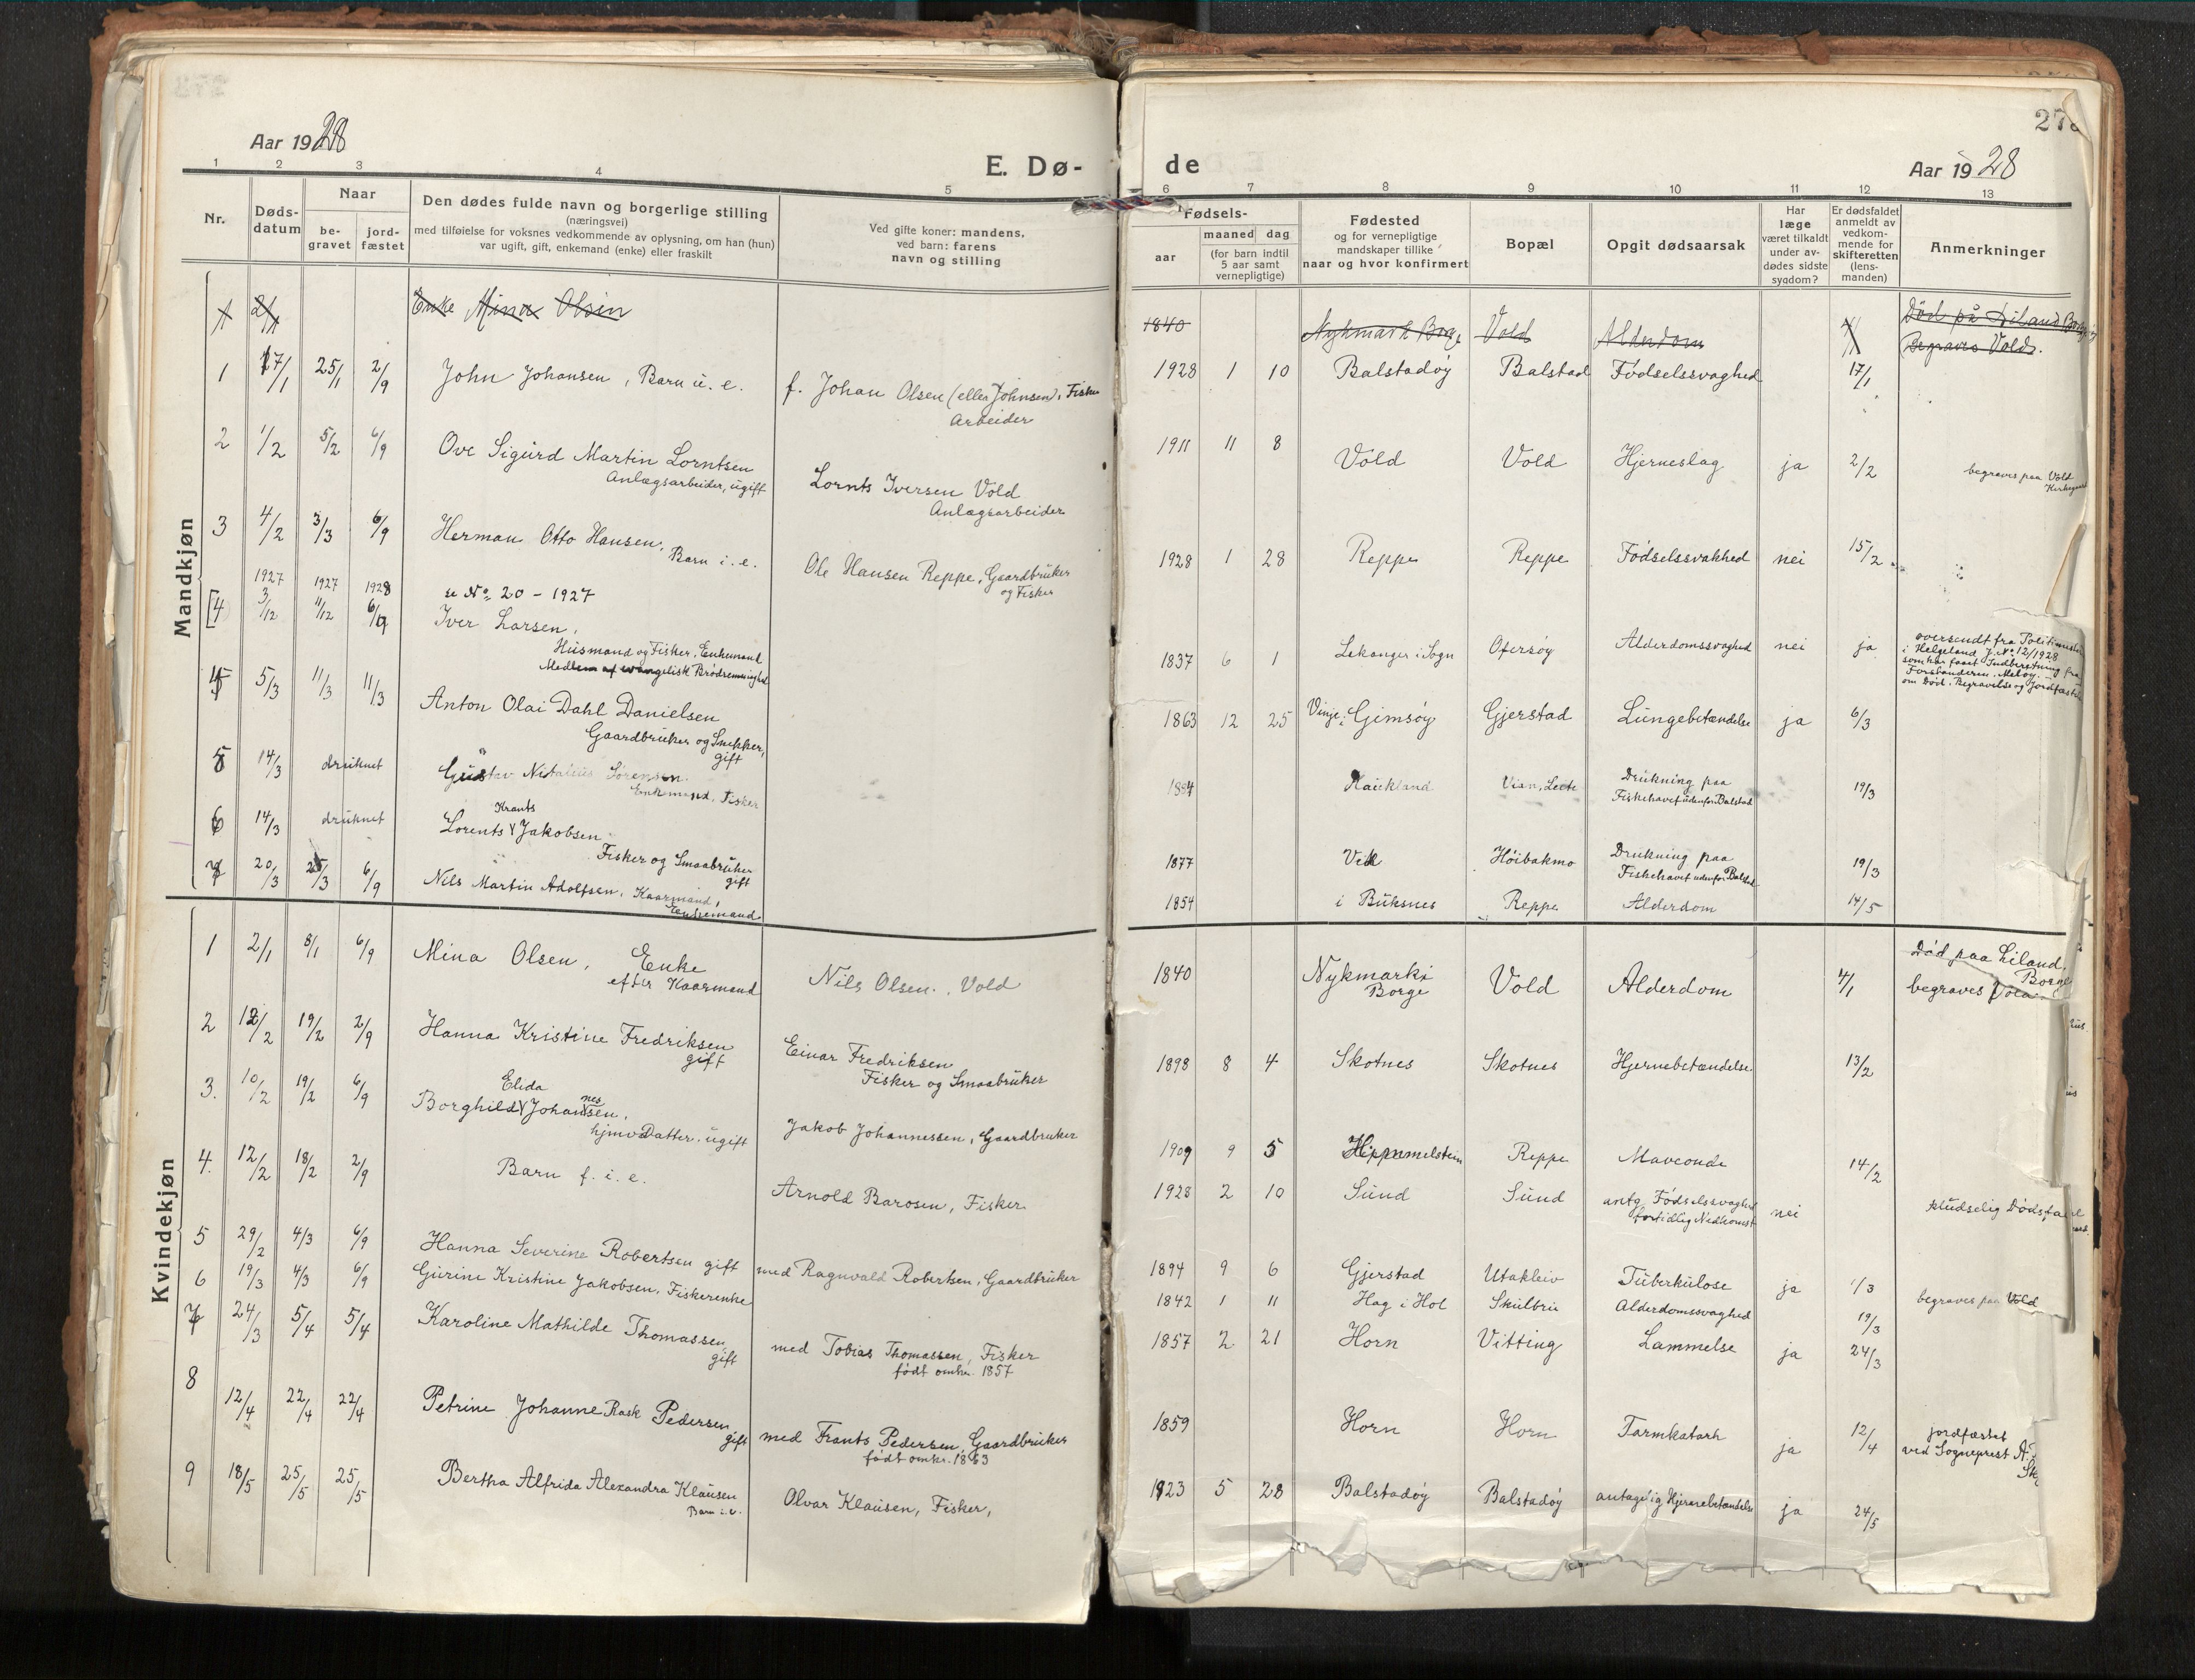 Aar 1928
E. Dø-
1 2 3 4 5
Nr.
Døds-
datum
Naar
be-
gravet
jord-
fæstet
Den dødes fulde navn og borgerlige stilling
(næringsvei)
med tilføielse for voksnes vedkommende av oplysning, om han (hun)
var ugift, gift, enkemand (enke) eller fraskilt
Ved gifte koner: mandens,
ved barn: farens
navn og stilling
Mandkjøn
Enke Mina Olsen
1 17/1 25/1 2/9 John Johansen, Barn u. e. f. Johan Olsen (eller Johnsen), Fisker
Arbeider
2 1/2 5/2 6/9 Ove Sigurd Martin Lorntsen
Anlægsarbeider, ugift
Lornts Iversen Vold
Anlægsarbeider
3 4/2 3/3 6/9 Herman Otto Hansen,
Barn i. e.
Ole Hansen Reppe, Gaardbruker
og Fisker
1927 1927 1928 se No. 20 - 1927
[4 3/12 11/12 6/9 Iver Larsen,
Husmand og Fisker, Enkemand
Medlem af evangelisk Brødremenighed
4 5/3 11/3 11/3 Anton Olai Dahl Danielsen
Gaardbruker og Snekker,
gift
5 14/3 druknet Gustav Nitalius Sørensen.
Enkemand, Fisker
Krants
6 14/3 druknet Lorents Jakobsen
Fisker og Smaabruker
gift
7 20/3 25/3 6/9 Nils Martin Adolfsen, Kaarmand,
Enkemand
Kvindekjøn
1 2/1 8/1 6/9 Mina Olsen, Enke
efter Kaarmand
Nils Olsen, Vold
2 12/2 19/2 2/9 Hanna Kristine Fredriksen
gift
Einar Fredriksen
Fisker og Smaabruker
Elida
3. 10/2 19/2 6/9 Borghild Johannesen,
hjmv. Datter, ugift
Jakob Johannessen, Gaardbruker
4. 12/2 18/2 2/9 Barn f. i. e.
Arnold Barosen, Fisker
5 29/2 4/3 6/9 Hanna Severine Robertsen gift med Ragnvald Robertsen, Gaardbruker
6 19/3 4/3 6/9 Gurine Kristine Jakobsen, Fiskerenke
7 24/3 5/4 5/4 Karoline Mathilde Thomassen,
gift
med Tobias Thomassen, Fisker
født omkr. 1857
8 12/4 22/4 22/4 Petrine Johanne Rask Pedersen,
gift
med Frants Pedersen, Gaardbruker
født omkr. 1863
9 18/5 25/5 25/5 Bertha Alfrida Alexandra Klausen
Barn i. e.
Olvar Klausen, Fisker,
de
Aar 1928
6 7 8 9 10 11 12 13
Fødsels-
aar
maaned dag
(for barn indtil
5 aar samt
vernepligtige)
Fødested
og for vernepligtige
mandskaper tillike
naar og hvor konfirmert
Bopæl
Opgit dødsaarsak
Har
læge
været tilkaldt
under av-
dødes sidste
sygdom?
Er dødsfaldet
anmeldt av
vedkom-
mende for
skifteretten
(lens-
manden)
Anmerkninger
1840 Nykmark Borge Vold Alderdom Død på Liland Borge
Begraves Vold.
1928 1 10 Balstadøy Balstad Fødselssvaghed 17/1
1911 11 8 Vold Vold Hjerneslag ja 2/2 begraves paa Vold
Kirkegaard
1928 1 28 Reppe Reppe Fødselssvakhed nei 15/2
1837 6 1 Lekanger i Sogn Ofersøy Alderdomssvaghed nei ja
oversendt fra Politimesteren
i Helgeland J. No. 12/1928
som har faaet Indberetning fra
Forstanderen, Meløy
om Død, Begravelse og Jordfæstelse
1863 12 25 Vinje i Gimsøy Gjerstad Lungebetændelse ja 6/3
1894 Haukland Drukning paa
Fiskehavet udenfor Balstad 19/3
1877 Høibakmo Drukning paa
Fiskehavet udenfor Balstad 19/3
1854 i Buksnes Reppe Alderdom 14/5
1840 Nykmark i
Borge Vold Alderdom 4/1 Død paa Liland,
Borge
begraves Vold
1898 8 4 Skotnes Skotnes Hjernebetændelse 13/2
1909 9 5 Reppe Maveonde 14/2
1928 2 10 Sund Sund antg. Fødselssvaghed
fortidlig Nedkomst nei pludselig Dødsfald
1894 9 6 Gjerstad Utakleiv Tuberkulose ja 1/3
1842 1 11 Hag i Hol Skulbru Alderdomssvaghed 19/3 begraves paa Vold
1857 2 21 Horn Vitting Lammelse ja 24/3
1859 Horn Horn Tarmkatarh ja 12/4 jordfæstet
ved Sogneprest A.
1923 5 28 Balstadøy Balstadøy antagelig Hjernebetændelse ja 24/5